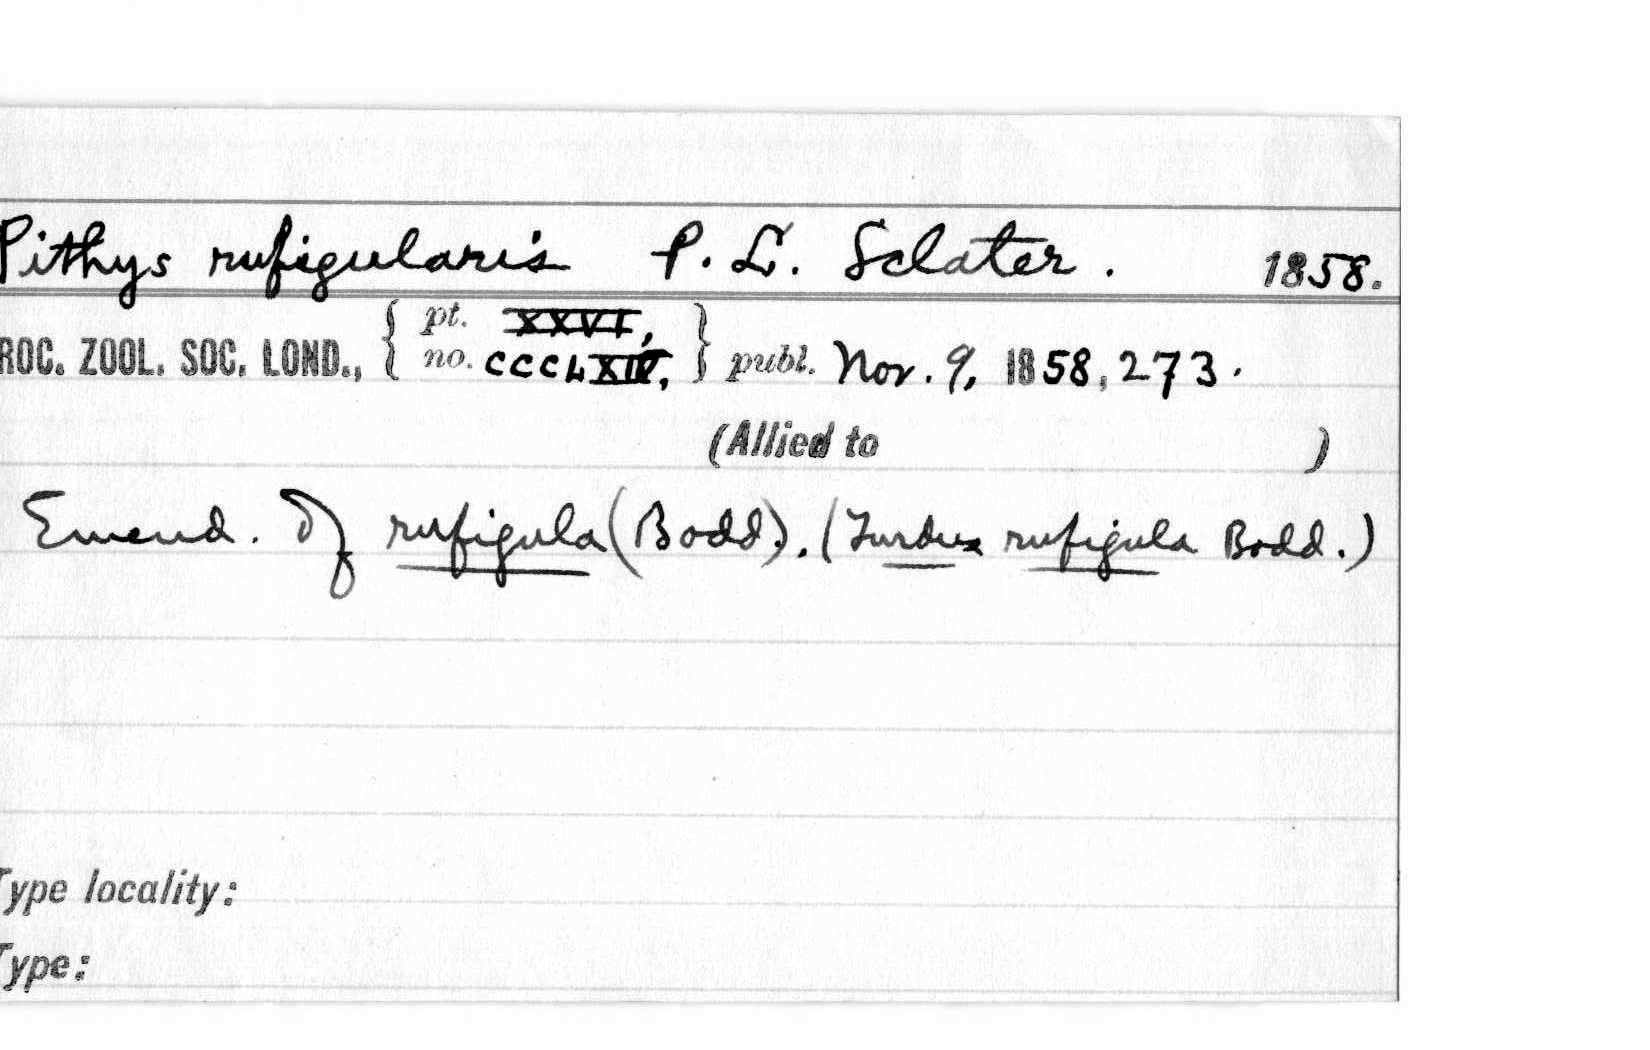 Pithys rufigularis P. L. Sclater. 1858.
ROC. ZOOL. SOC. LOND., { pt. XXVI, no. CCCLXIV, } publ. Nov. 9, 1858, 273.
(Allied to )
Emend. Of rufigula (Bodd). (Turdus rufigula Bodd.)
Type locality:
Type: